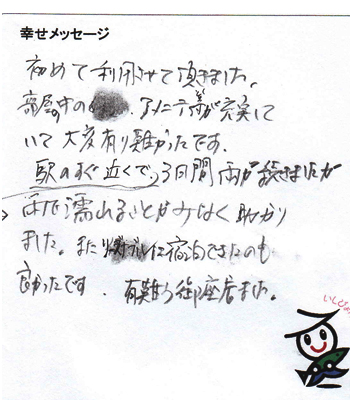 幸せメッセージ
初めて利用させて頂きました。
部屋の中の アメニティ等が充実して
いて大変有り難かったです。
駅のすぐ近くで、3日間雨が続きましたが
濡れることがみなく助かり
ました。また に宿泊できたのも
良かったです。有難う御座居ました。